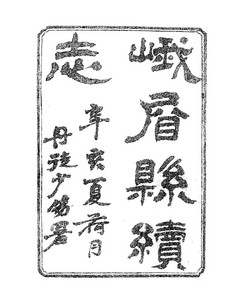 峨眉縣續
志
辛亥夏荷月
丹徒少署